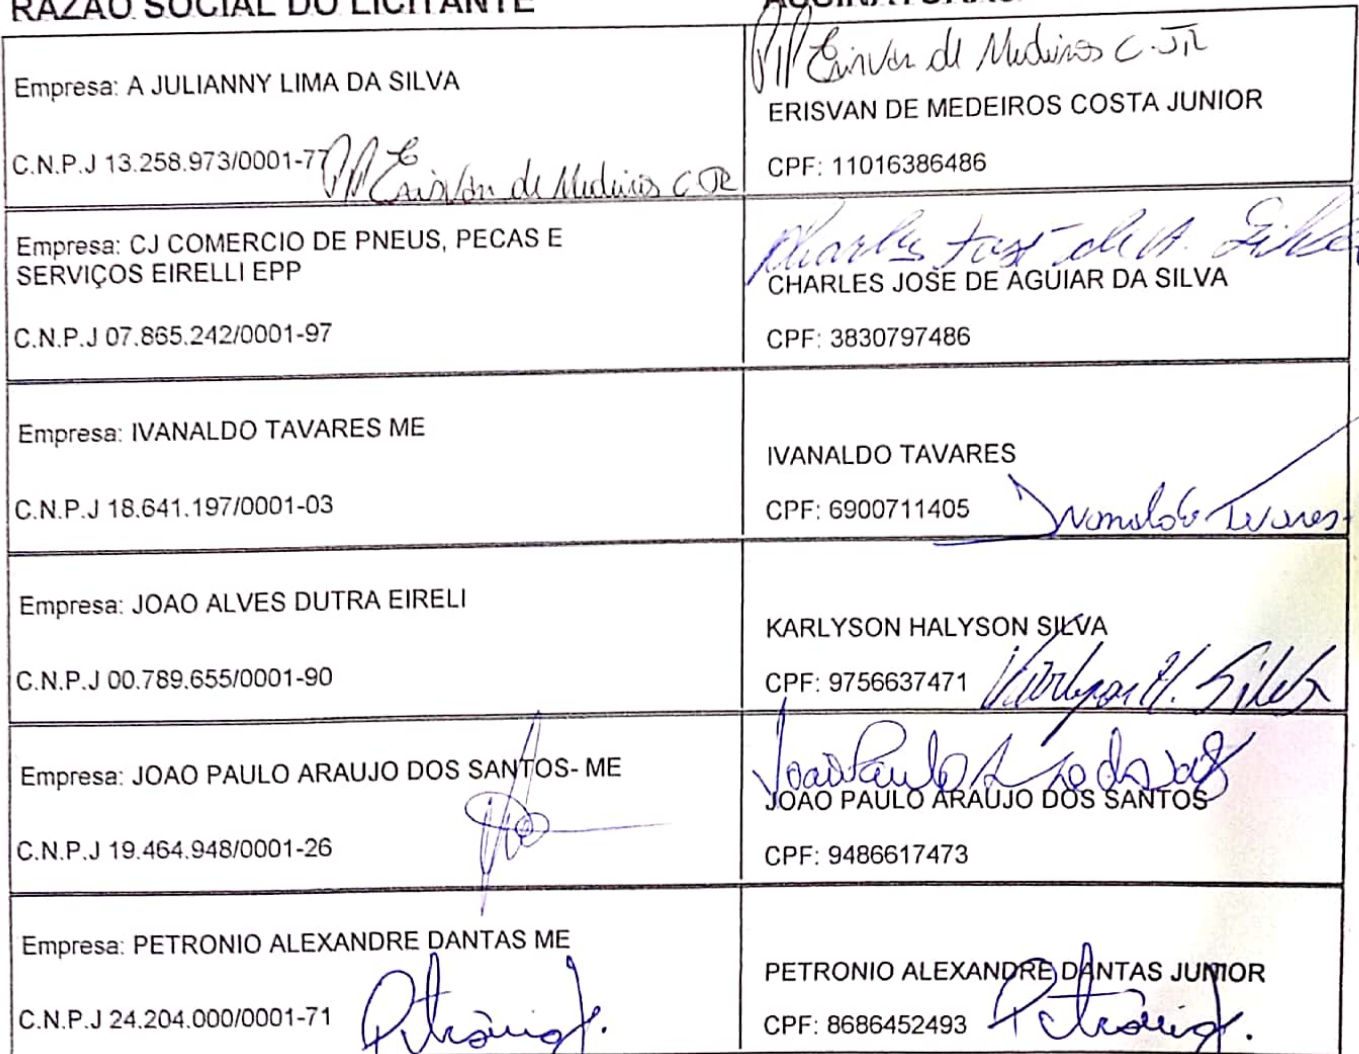 RAZAO SOCIAL DO LICITANTE
Empresa: A JULIANNY LIMA DA SILVA
C.N.P.J 13.258.973/0001-77
Erisvan de Medeiros C. JR
Erisvan de Medeiros C. JR
ERISVAN DE MEDEIROS COSTA JUNIOR
CPF: 11016386486
Empresa: CJ COMERCIO DE PNEUS, PECAS E
SERVIÇOS EIRELLI EPP
C.N.P.J 07.865.242/0001-97
Charles José de A. Silva
CHARLES JOSE DE AGUIAR DA SILVA
CPF: 3830797486
Empresa: IVANALDO TAVARES ME
C.N.P.J 18.641.197/0001-03
IVANALDO TAVARES
CPF: 6900711405
Ivanaldo Tavares
Empresa: JOAO ALVES DUTRA EIRELI
C.N.P.J 00.789.655/0001-90
KARLYSON HALYSON SILVA
CPF: 9756637471
Karlyson H. Silva
Empresa: JOAO PAULO ARAUJO DOS SANTOS- ME
C.N.P.J 19.464.948/0001-26
João Paulo A dos
JOAO PAULO ARAUJO DOS SANTOS
CPF: 9486617473
Empresa: PETRONIO ALEXANDRE DANTAS ME
C.N.P.J 24.204.000/0001-71
Petrônio J.
PETRONIO ALEXANDRE DANTAS JUNIOR
CPF: 8686452493
Petrônio J.